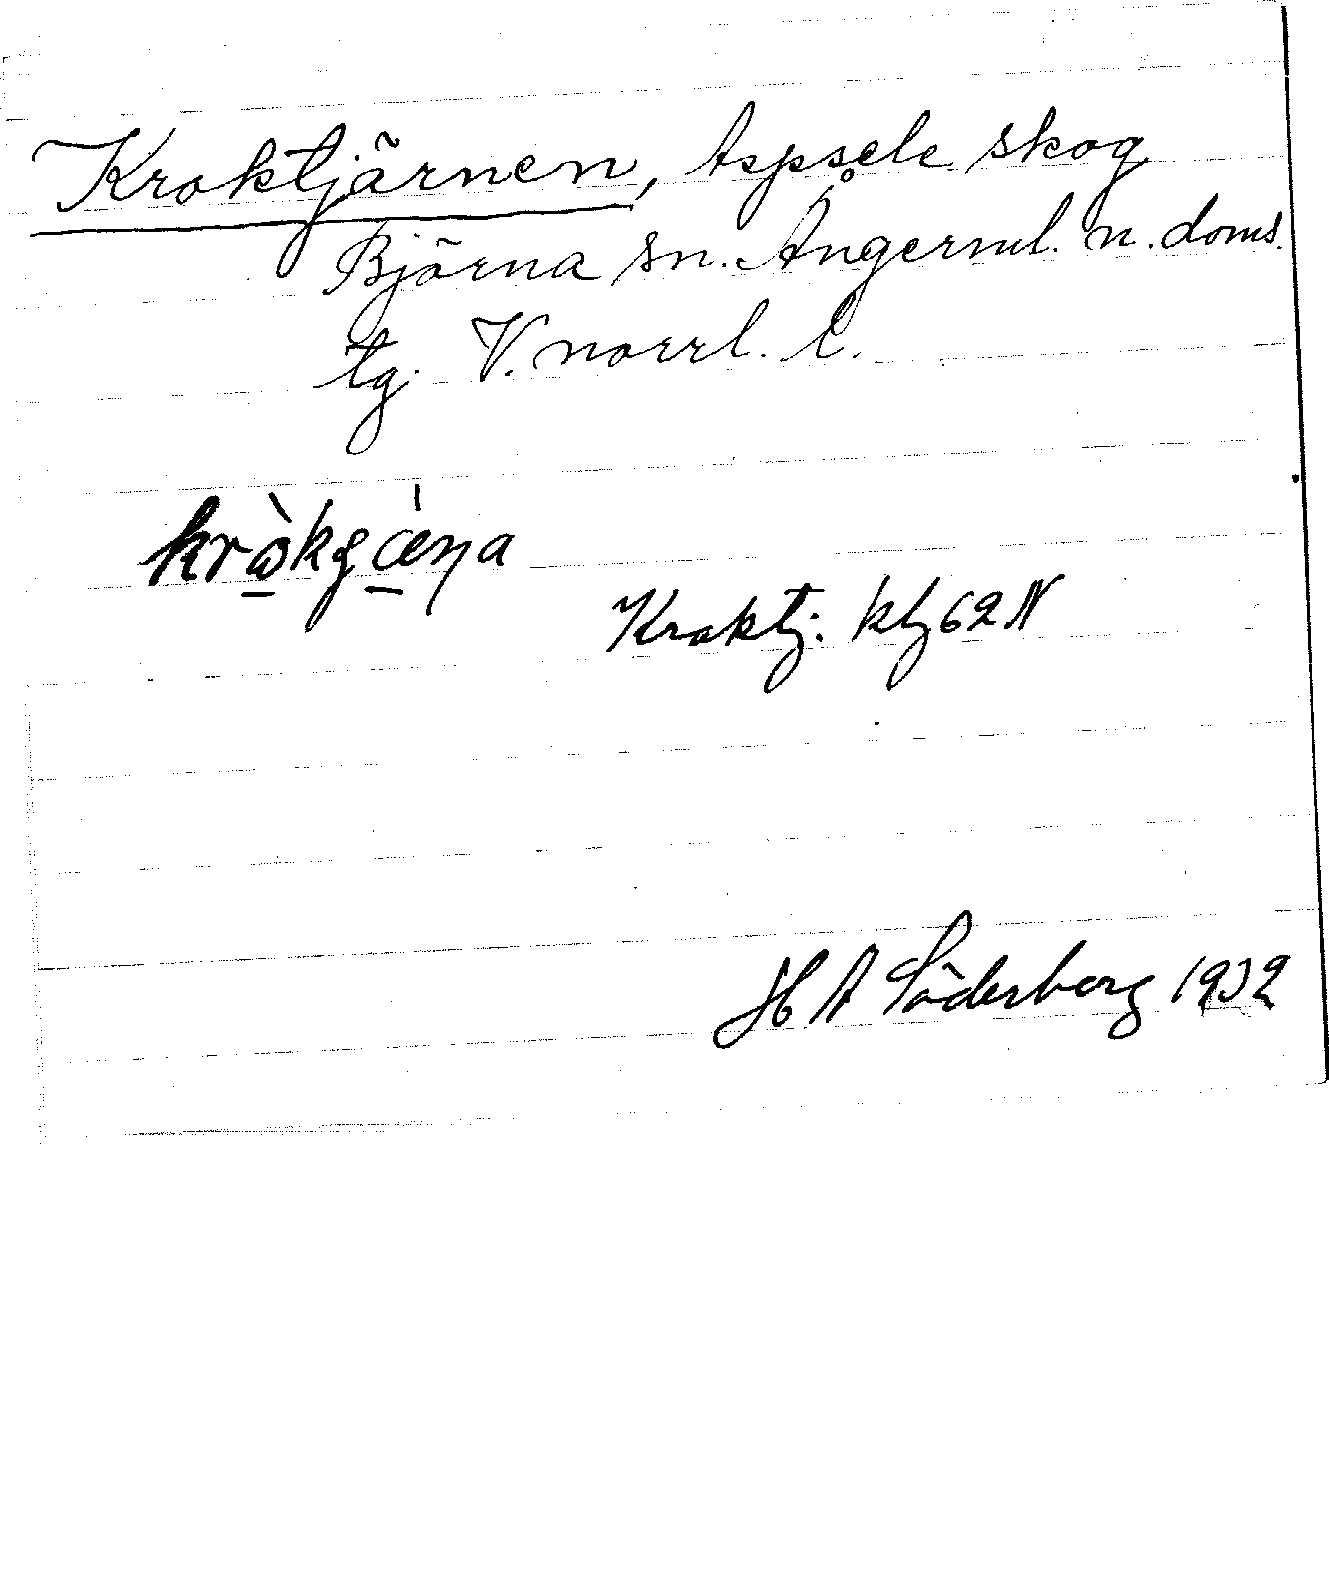 Kroktjärnen, Aspsele skog
Björna sn. Ångerml. n. doms.
tg. V. norrl. l.
Kroktj. kbj 62 N
H A Söderberg 1932